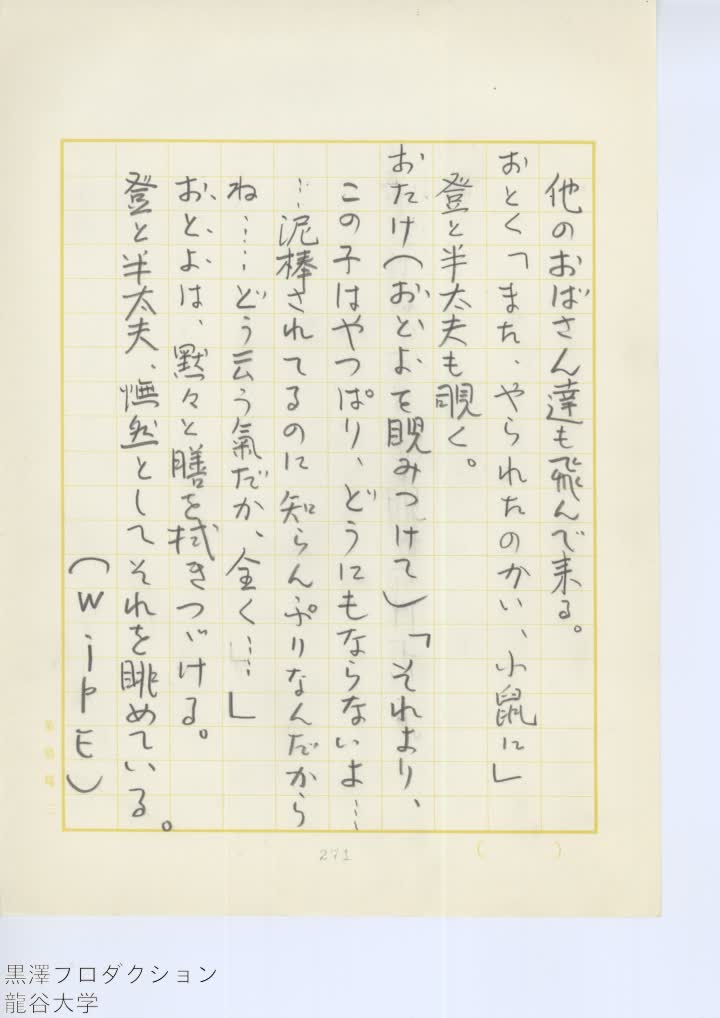 他のおばさん達も飛んで来る。
おとく「また、やられたのかい、小鼠に」
登と半太夫も覗く。
おたけ（おとよを睨みつけて）「それより、
この子はやつぱり、どうにもならないよ……
…泥棒されてるのに知らんぷりなんだから
ね……どう云う氣だか、全く……」
おとよは、黙々と膳を拭きつゞける。
登と半太夫、憮然としてそれを眺めている。
（WipE）
271
（　　　）
黒澤プロダクション
龍谷大学